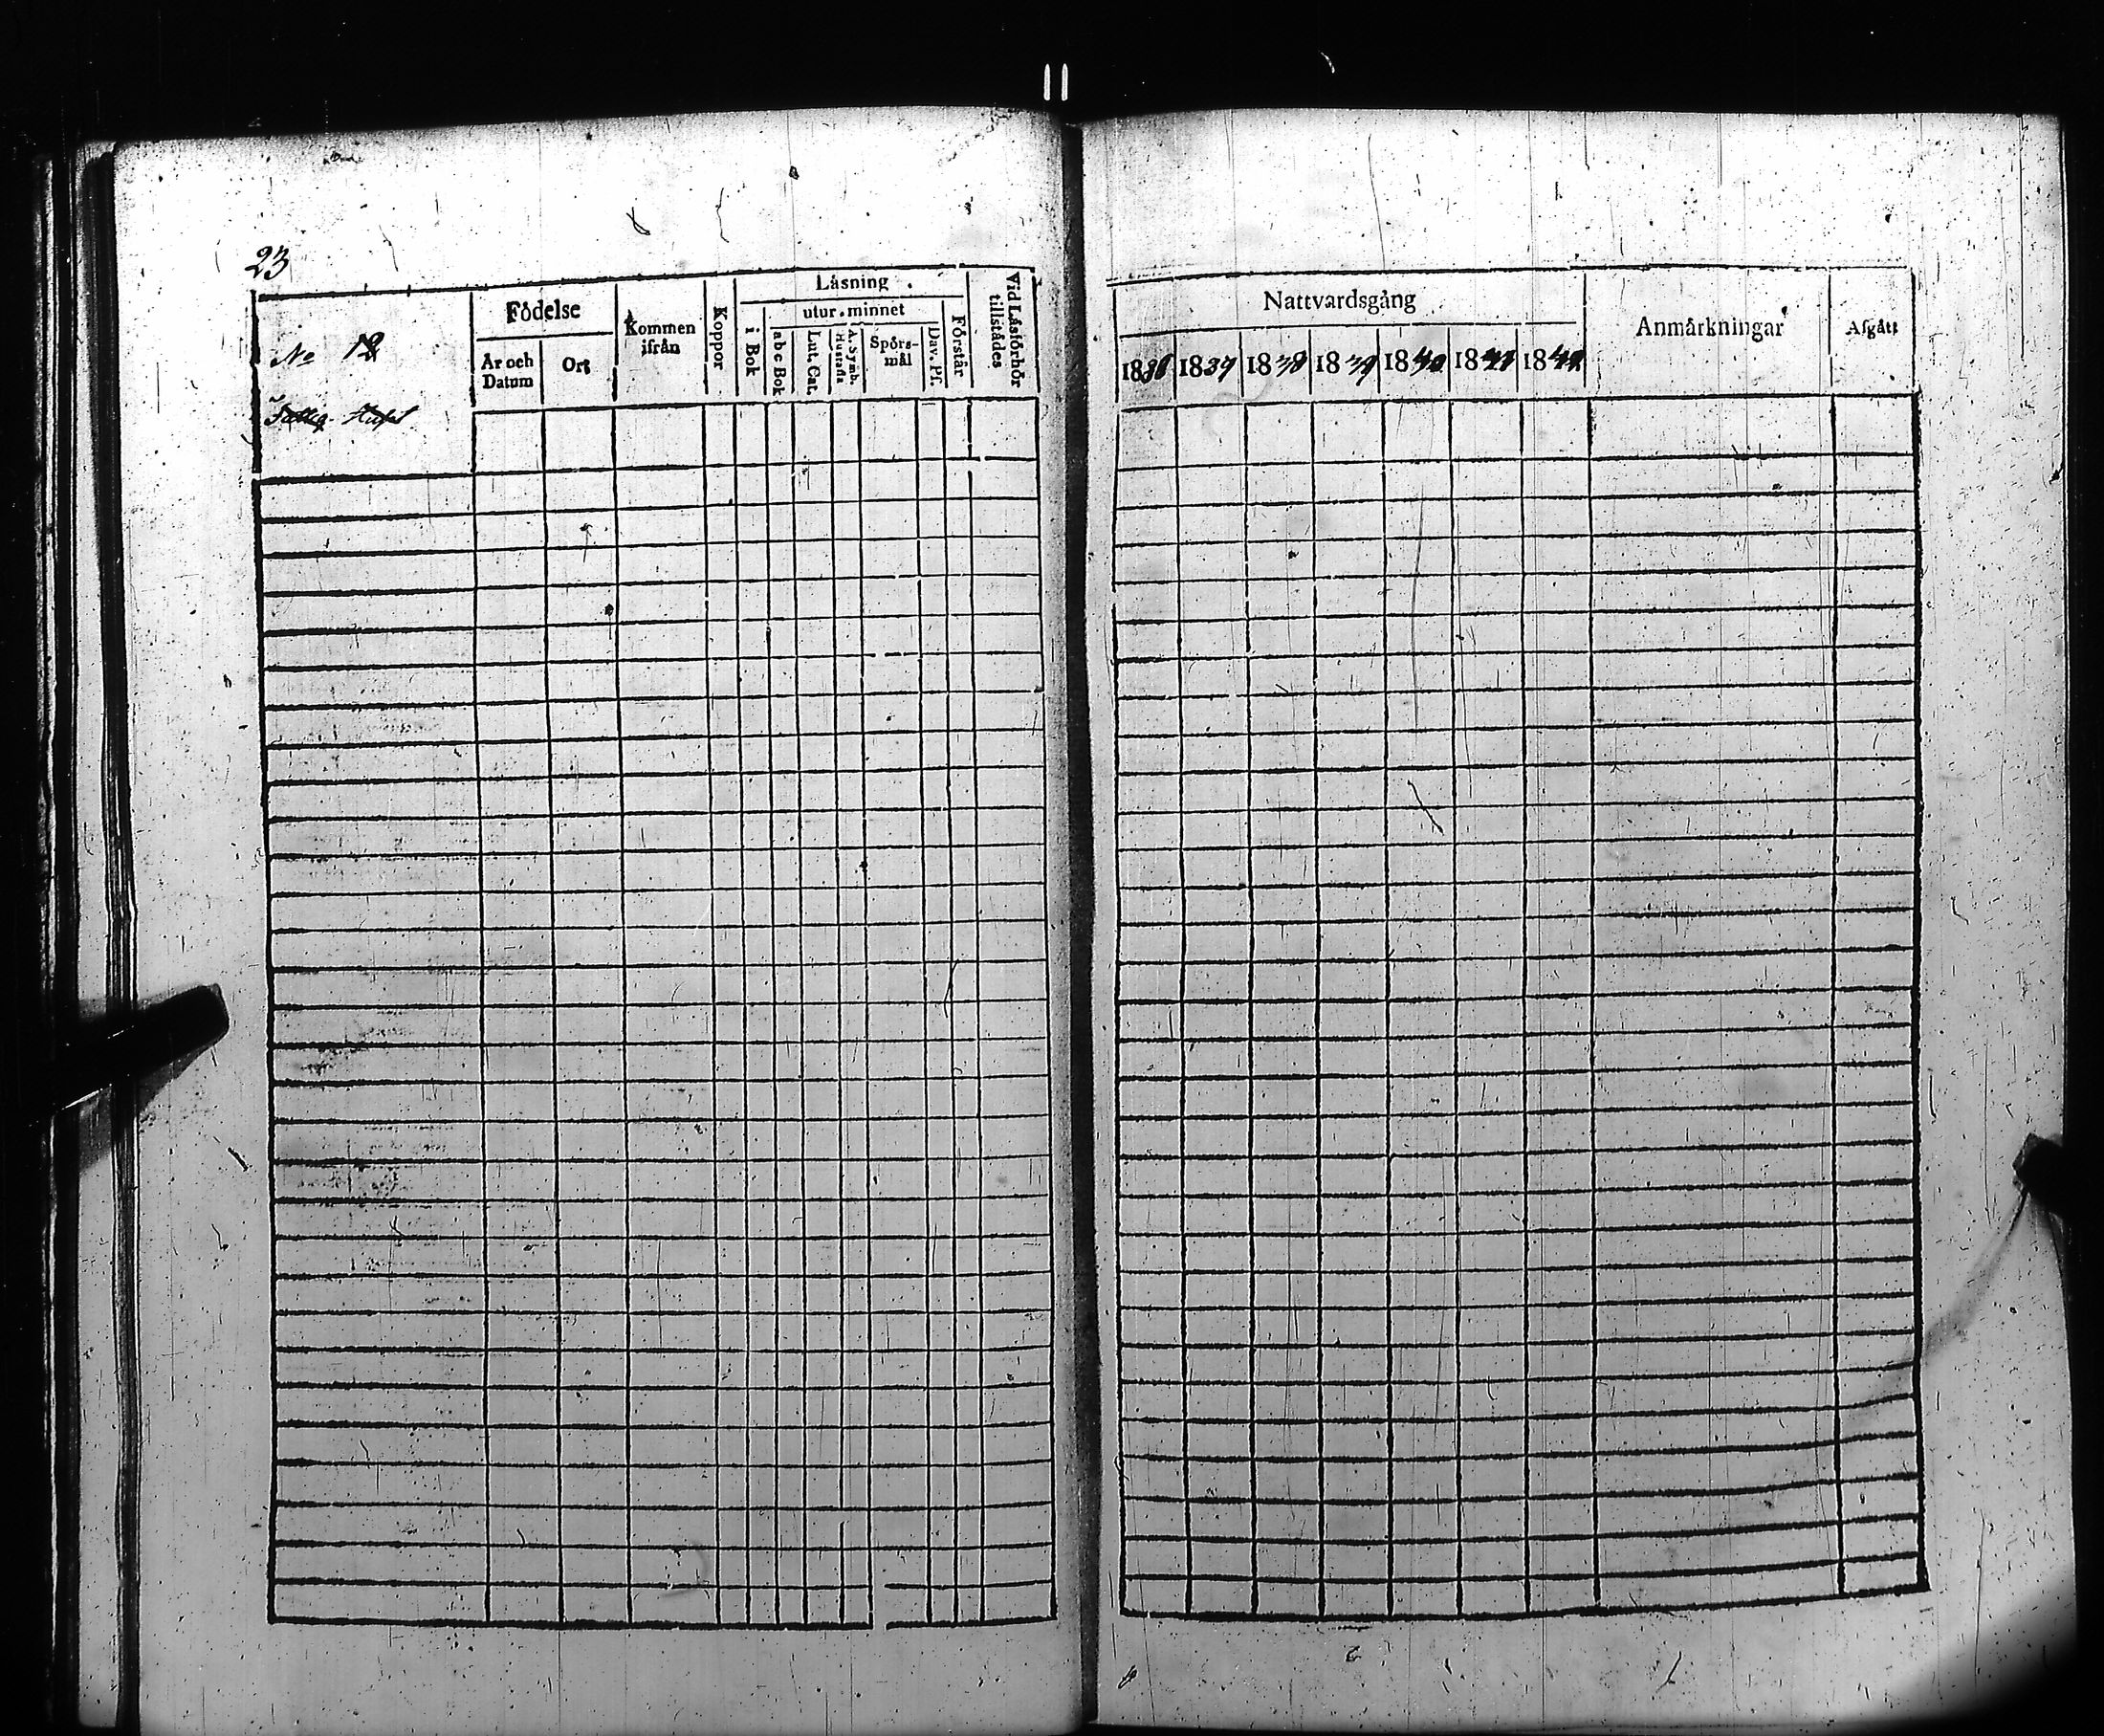 23
No 12
Fattig-Huset
Födelse
År och Datum
Ort
Kommen ifrån
Koppor
Läsning
i Bok
utur minnet
abc Bok
Lut. Cat.
A. Symb. Hustafla
Spörs-mål
Dav. Ps.
Förstår
Vid Läsförhör tillstådes
Nattvardsgång
1836 1837 1838 1839 1840 1841 1842
Anmärkningar
Afgått